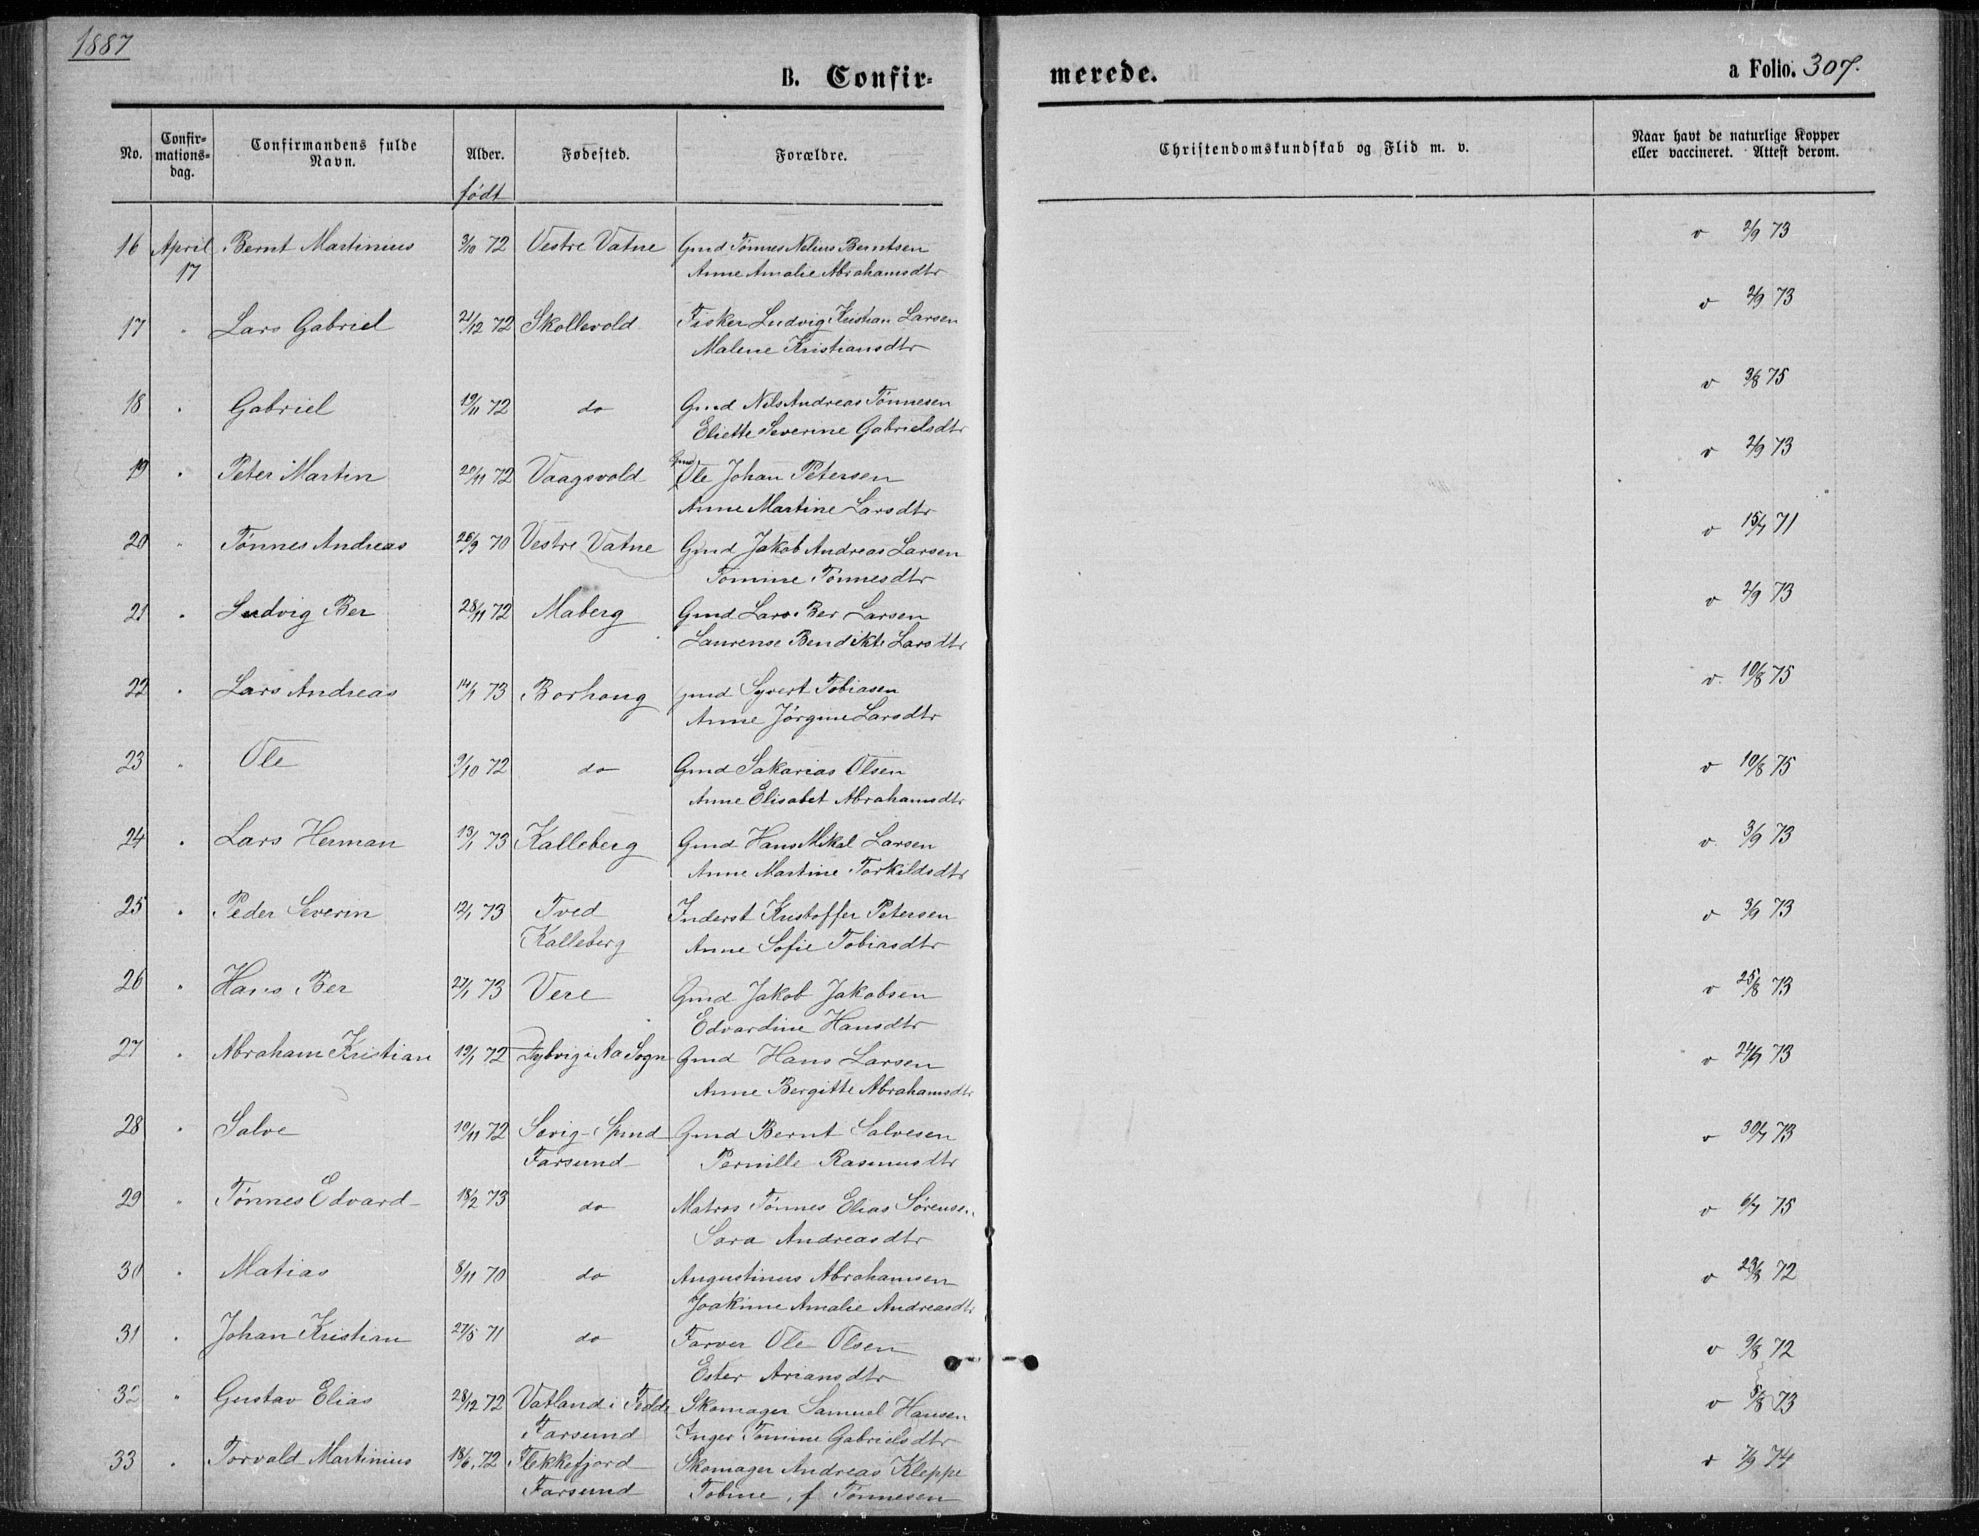 1887
B. Confir-
merede.
a Folio. 307.
No.
Confir-
mations-
dag.
Confirmandens fulde
Navn.
Alder.
født
Fødested.
Forældre.
Christendomskundskab og Flid m. v.
Naar havt de naturlige Kopper
eller vaccineret. Attest derom.
16 April Bernt Martinius 3/10 72 Vestre Vatne Gmd Tønnes Nelius Berntsen v 2/9 73
17 Anne Amalie Abrahamsdtr
17 " Lars Gabriel 21/12 72 Skollevold Fisker Ludvig Kristian Larsen v 2/9 73
Malene Kristiansdtr
18 " Gabriel 19/11 72 do Gmd Nils Andreas Tønnesen v 3/8 75
Eliette Severine Gabrielsdtr
19 " Peter Martin 20/11 72 Vaagsvold Gmd Ole Johan Petersen v 2/9 73
Anne Martine Larsdtr
20 " Tønnes Andreas 26/9 70 Vestre Vatne Gmd Jakob Andreas Larsen v 15/7 71
Tomine Tønnesdtr
21 " Ludvig Ber 28/11 72 Maberg Gmd Lars Ber Larsen v 2/9 73
Laurense Bendikte Larsdtr
22 " Lars Andreas 14/1 73 Borhaug gmd Syvert Tobiasen v. 10/8 75
Anne Jørgine Larsdtr
23 " Ole 9/10 72 do Gmd Sakarias Olsen v 10/8 75
Anne Elisabet Abrahamsdtr
24 " Lars Herman 13/1 73 Kalleberg Gmd Hans Mikal Larsen v. 3/9 73
Anne Martine Torkildsdtr
25 " Peder Severin 12/1 73 Tved Inderst Kristoffer Petersen v 3/9 73
Kalleberg Anne Sofie Tobiasdtr
26 " Hans Ber 27/1 73 Vere Gmd Jakob Jakobsen v 25/8 73
Edvardine Hansdtr
27 " Abraham Kristian 19/1 72 Dybvig i Aa Sogn Gmd Hans Larsen v 24/9 73
Anne Bergitte Abrahamsdtr
28 " Salve 10/11 72 Spind Gmd Bernt Salvesen v 30/7 73
Farsund Pernille Rasmusdtr
29 " Tønnes Edvard 18/2 73 do Matros Tønnes Elias Sørensen v 6/7 75
Sara Andreasdtr
30 " Matias 8/11 70 do Augustinus Abrahamsen v 23/8 72
Joakime Amalie Andreasdtr
31 " Johan Kristian 27/5 71 do Farver Ole Olsen v 9/8 72
Ester Ariansdtr
32 " Gustav Elias 28/12 72 Vatland i Fedde Skomager Samuel Hansen v 5/8 73
Farsund Inger Tomine Gabrielsdtr
33 " Torvald Martinius 18/6 72 Flekkefjord Skomager Andreas Kleppe v 7/9 74
Farsund Tobine f. Tønnesen